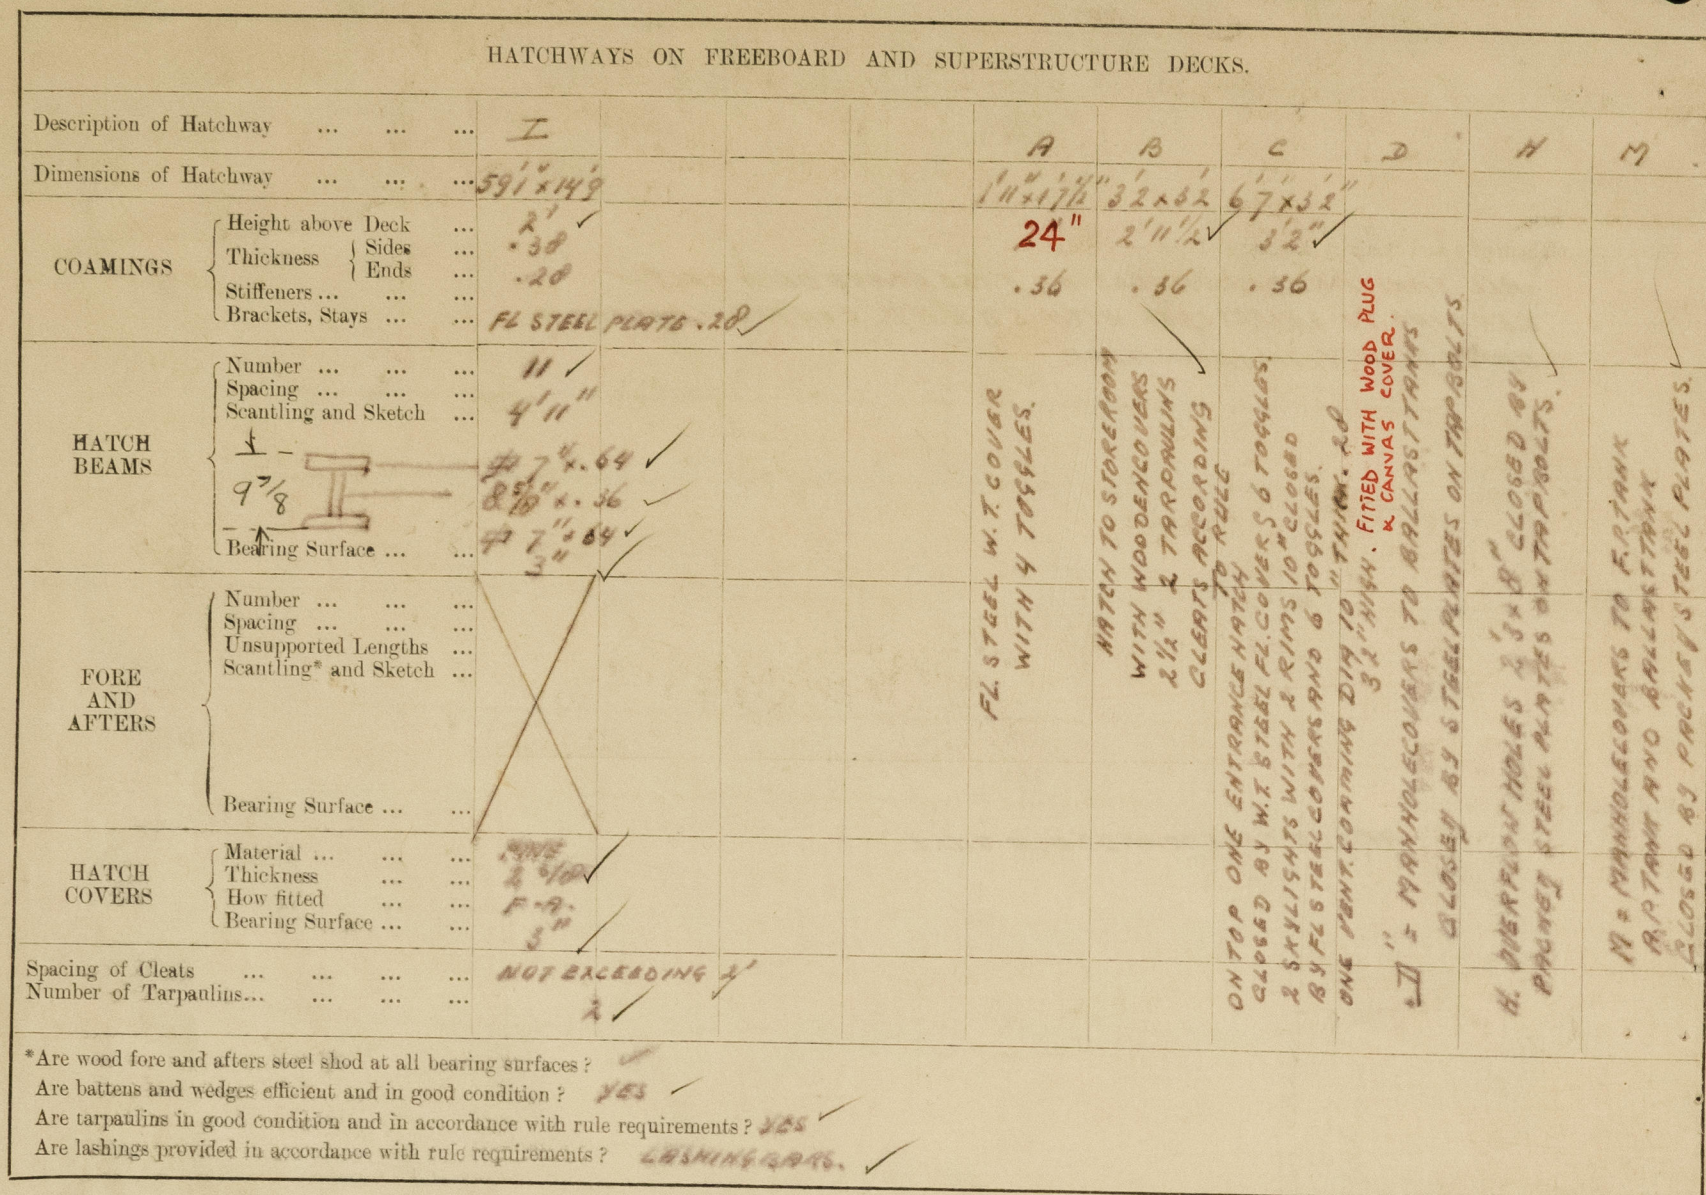 HATCHWAYS ON FREEBOARD AND SUPERSTRUCTURE DECKS.
Description of Hatchway ... ... ... I A B C D H M
Dimensions of Hatchway ... ... ... 59'1" x 14'9 1'11" x 1'7½" 3'2 x 3'2 6'7 x 3'2"
COAMINGS
Height above Deck ... 2' ✓ 24" 2'11½ ✓ 3'2" ✓
Thickness { Sides ... .38
Ends ... .28 .36 .36 .36
Stiffeners ... ... ...
Brackets, Stays ... ... FL STEEL PLATE .28 ✓
HATCH BEAMS
Number ... ... ... 11 ✓
Spacing ... ... ...
Scantling and Sketch ... 4'11"
9⅞
7" x .64 ✓
8⅝" x .36 ✓
7" x .64 ✓
Bearing Surface ... ... 3" ✓
FORE AND AFTERS
Number ... ... ...
Spacing ... ... ...
Unsupported Lengths ...
Scantling* and Sketch ...
Bearing Surface ... ...
HATCH COVERS
Material ... ... ... PINE
Thickness ... ... 2 6/8 ✓
How fitted ... ... F-A.
Bearing Surface ... ... 3" ✓
Spacing of Cleats ... ... ... ... NOT EXCEEDING 2' ✓
Number of Tarpaulins... ... ... ... 2 ✓
FL. STEEL W.T. COVER
WITH 4 TOGGLES.
HATCH TO STOREROOM
WITH WOODENCOVERS
2½" 2 TARPAULINS
CLEATS ACCORDING
TO RULE
ON TOP ONE ENTRANCE HATCH
CLOSED BY W.T. STEEL FL. COVERS 6 TOGGLES.
2 SKYLIGHTS WITH 2 RIMS 10" CLOSED
BY FL STEELCOVERS AND 6 TOGGLES.
ONE VENT. COAMING DIA 10" THICK .28
32" HIGH. FITTED WITH WOOD PLUG
& CANVAS COVER.
D = MANHOLECOVERS TO BALLASTTANKS
CLOSED BY STEELPLATES ON TAPBOLTS
H. OVERFLOW HOLES 2'3 x 8" CLOSED BY
PACKED STEEL PLATES ON TAPBOLTS.
M = MANHOLECOVERS TO F.P. TANK
A.P. TANK AND BALLASTTANK
CLOSED BY PACKED STEEL PLATES.
*Are wood fore and afters steel shod at all bearing surfaces? ✓
Are battens and wedges efficient and in good condition? YES ✓
Are tarpaulins in good condition and in accordance with rule requirements? YES ✓
Are lashings provided in accordance with rule requirements? LASHINGBARS. ✓